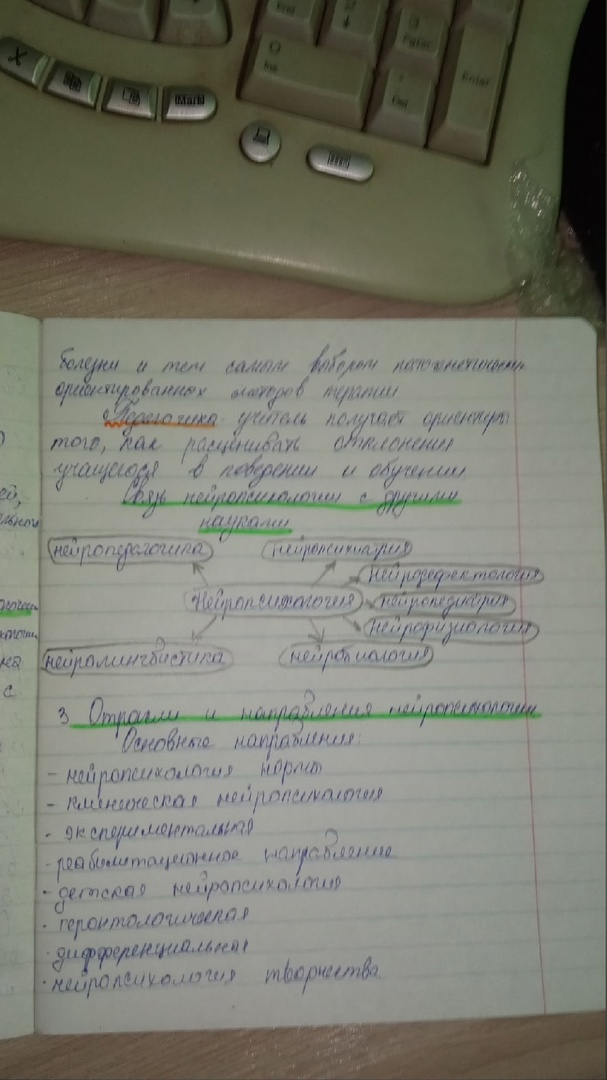 Ins
Enter
Mark
болезни и тем самым выбором патогенетически
ориентированных методов терапии
Педагогика - учитель получает ориентиры
того, как расценивать отклонения
учащегося в поведении и обучении.
Связь нейропсихологии с другими
науками
нейропедагогика
нейропсихиатрия
нейродефектология
Нейропсихология
нейропедиатрия
нейрофизиология
нейролингвистика
нейробиология
3 Отрасли и направления нейропсихологии
Основные направления:
- нейропсихология нормы
- клиническая нейропсихология
- экспериментальная
- реабилитационное направление
- детская нейропсихология
- геронтологическая
- дифференциальная
- нейропсихология творчества